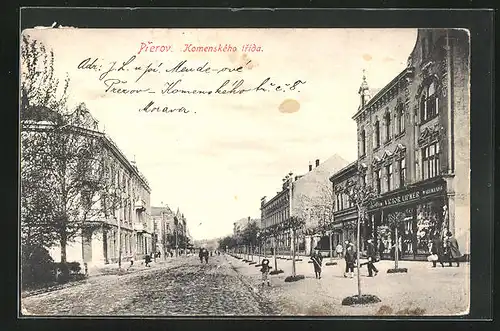 Přerov. Komenského třída.
Adr: J. L.
Mende-ové
Přerov - Komenského tř. č 8
Morava.
VICTOR